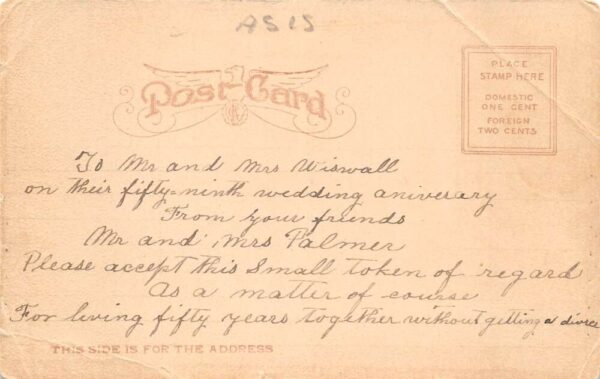 AS IS
Post Card
PLACE
STAMP HERE
DOMESTIC
ONE CENT
FOREIGN
TWO CENTS
To Mr and Mrs Wiswall
on their fifty-ninth wedding aniversary
From your friends
Mr and Mrs Palmer
Please accept this Small token of regard
As a matter of course
For living fifty years together without getting a divorce
THIS SIDE IS FOR THE ADDRESS